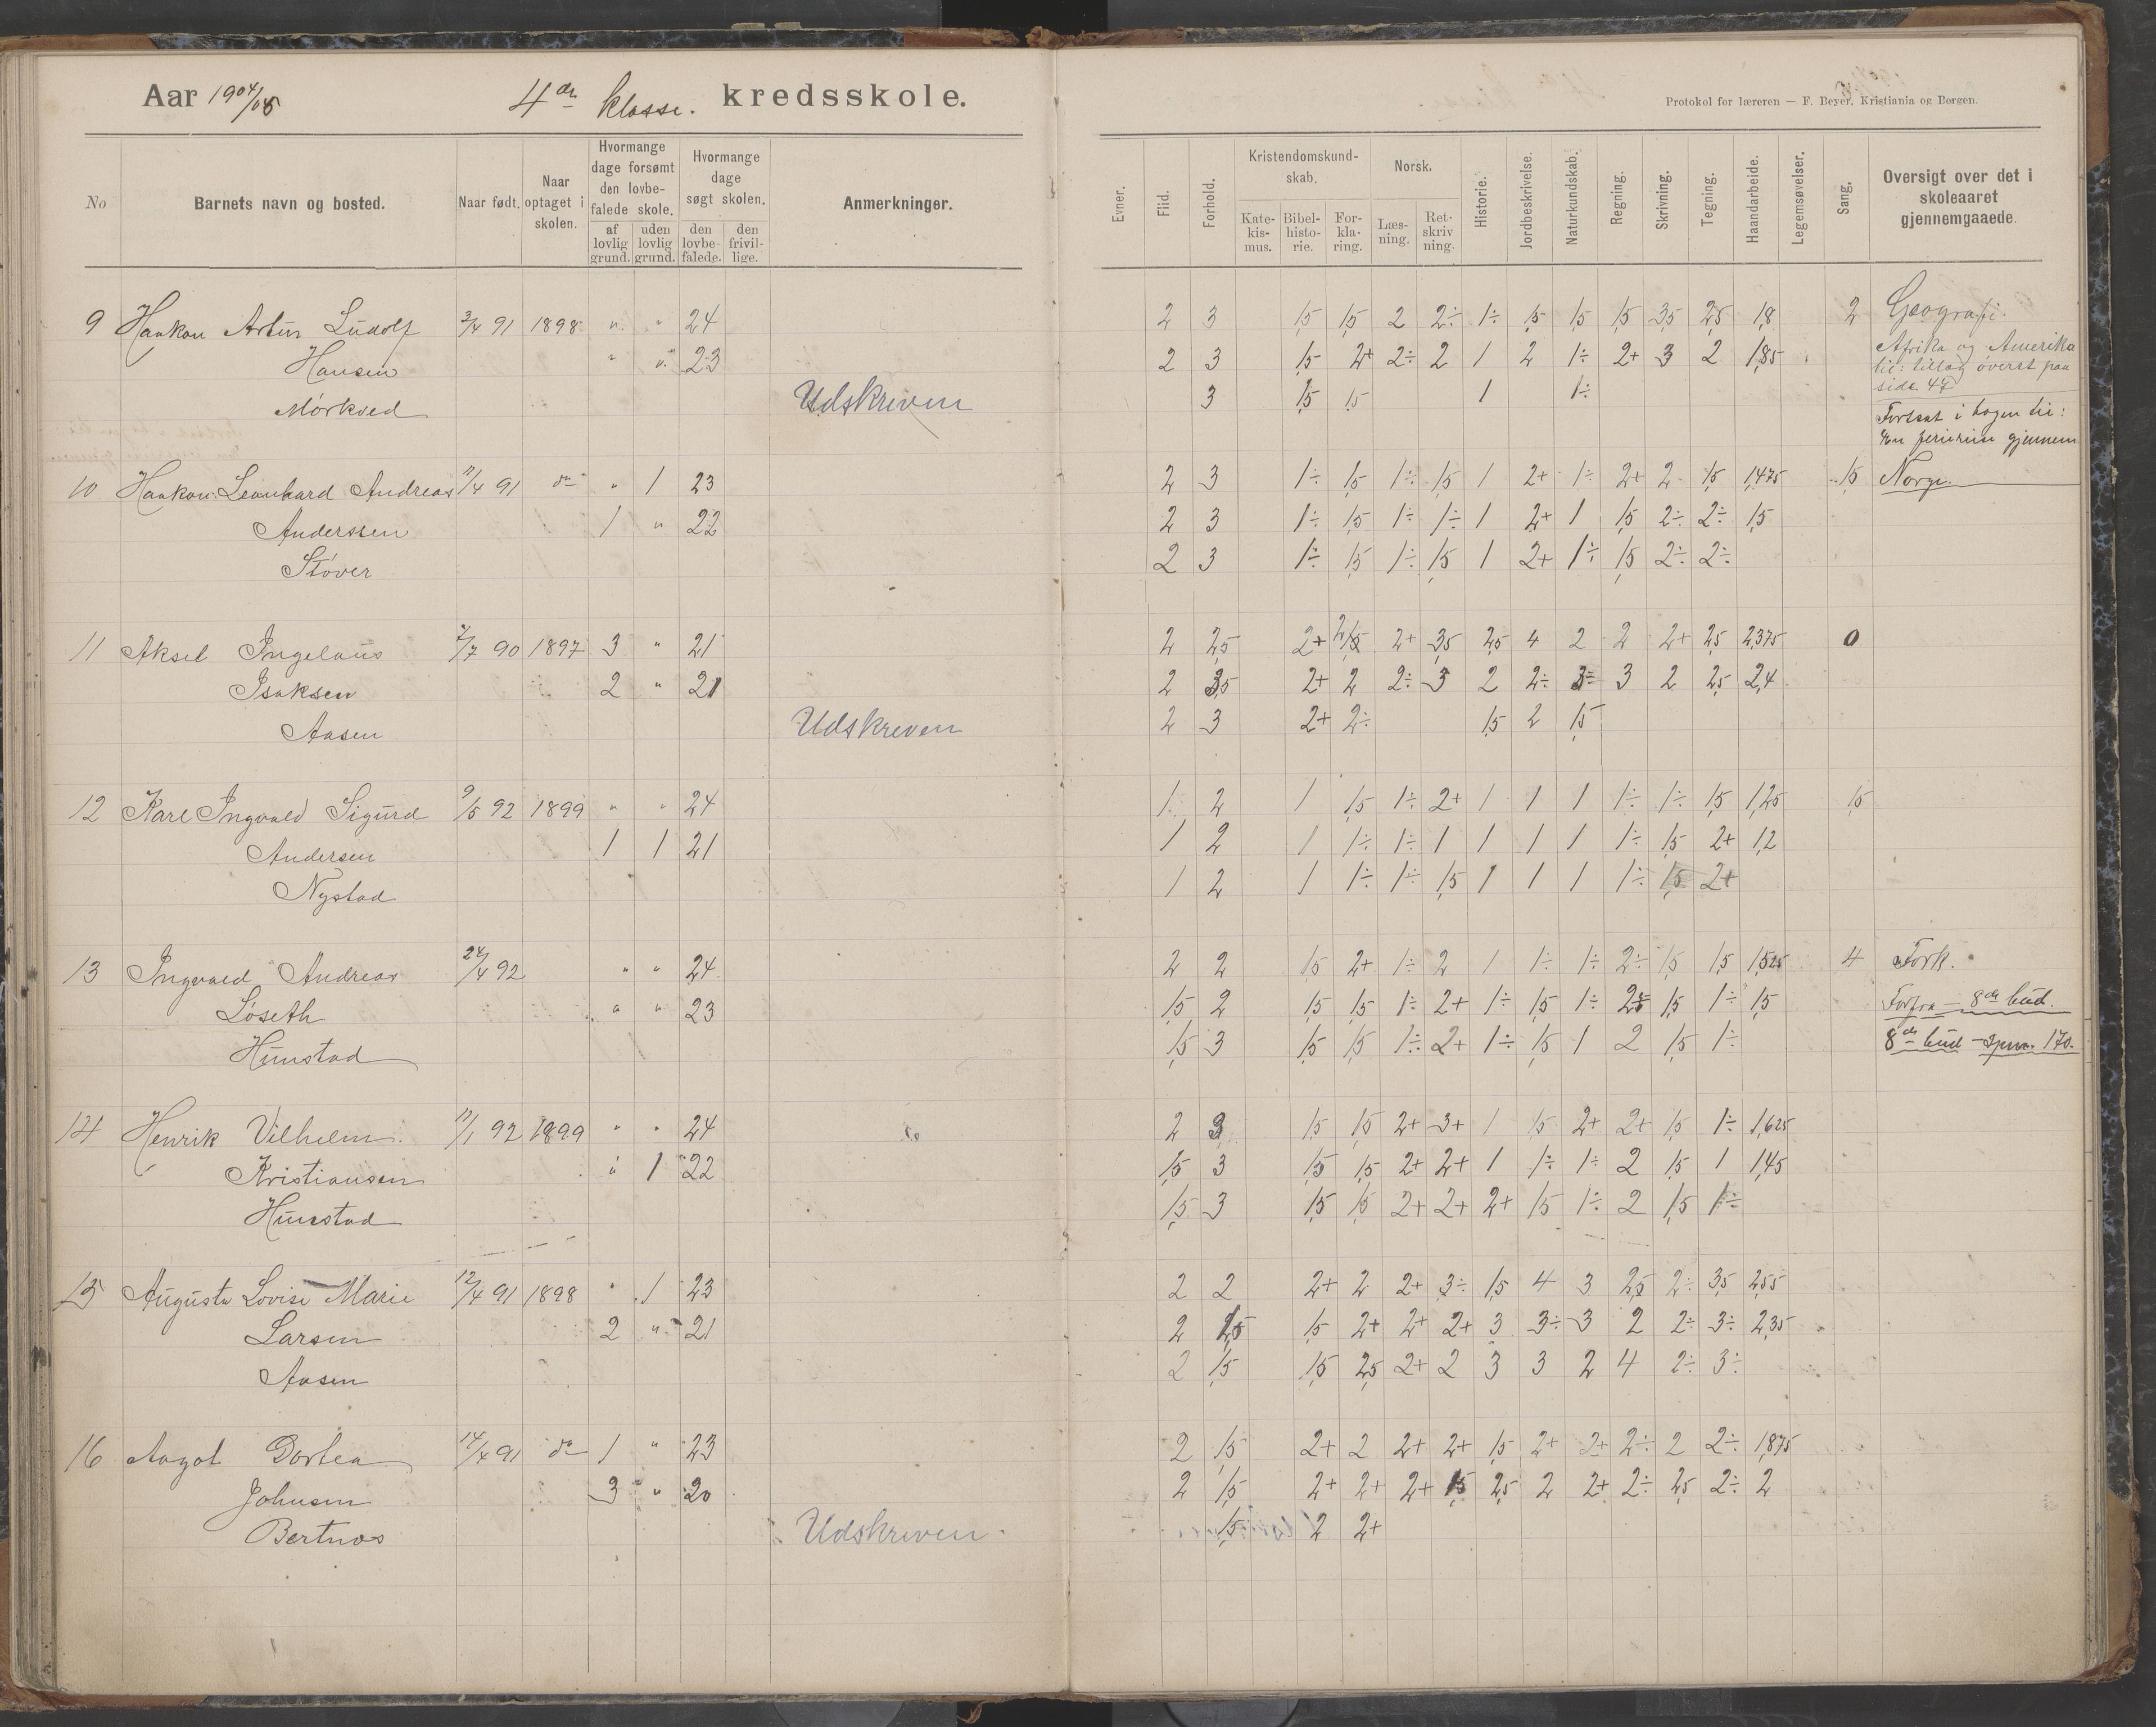 Aar 1904/05 4de klasse. kredsskole.
Protokol for læreren — F. Beyer, Kristiania og Bergen.
No
Barnets navn og bosted.
Naar født.
Naar optaget i skolen.
Hvormange dage forsømt den lovbefalede skole.
af lovlig grund.
uden lovlig grund.
Hvormange dage søgt skolen.
den lovbefalede.
den frivillige.
Anmerkninger.
Evner.
Flid.
Forhold.
Kristendomskundskab.
Katekismus.
Bibelhistorie.
Forklaring.
Norsk.
Læsning.
Retskrivning.
Historie.
Jordbeskrivelse.
Naturkundskab.
Regning.
Skrivning.
Tegning.
Haandarbeide.
Legemsøvelser.
Sang.
Oversigt over det i skoleaaret gjennemgaaede.
9 Haakon Artur Ludolf 3/4 91 1898 " " 24 2 3 1,5 1,5 2 2÷ 1÷ 1,5 1,5 1,5 3,5 2,5 1,8 2 Geografi.
Hansen " " 23 2 3 1,5 2+ 2÷ 2 1 2 1÷ 2+ 3 2 1,85 Afrika og Amerika
til: tillæg øverst paa
side 47
Mørkved Udskreven 3 1,5 1,5 1 1÷
Fortsat i bogen til:
En ferireise gjennem
10 Haakon Leonhard Andreas 11/4 91 do " 1 23 2 3 1÷ 1,5 1÷ 1,5 1 2+ 1÷ 2+ 2 1,5 1,475 1,5 Norge.
Anderssen 1 " 22 2 3 1÷ 1,5 1÷ 1÷ 1 2+ 1 1,5 2÷ 2÷ 1,5
Støver 2 3 1÷ 1,5 1÷ 1,5 1 2+ 1÷ 1,5 2÷ 2÷
11 Aksel Ingelaus 7/7 90 1897 3 " 21 2 2,5 2+ 2+ 3,5 2,5 4 2 2 2+ 2,5 2,375 0
Isaksen 2 " 21 2 3,5 2+ 2 2÷ 3 2 2÷ 3 2 2,5 2,4
Aasen Udskreven 2 3 2+ 2÷ 1,5 2 1,5
12 Karl Ingvald Sigurd 9/5 92 1899 " " 24 1 2 1 1,5 1÷ 2+ 1 1 1 1÷ 1÷ 1,5 1,25 1,5
Andersen 1 1 21 1 2 1 1÷ 1÷ 1 1 1 1 1÷ 1,5 2+ 1,2
Nystad 1 2 1 1÷ 1÷ 1,5 1 1 1 1÷ 1,5 2+
13 Ingvald Andreas 24/4 92 " " 24 2 2 1,5 2+ 1÷ 2 1 1÷ 1÷ 2÷ 1,5 1,5 1,525 4 Fork.
Løseth " " 23 1,5 2 1,5 1,5 1÷ 2+ 1÷ 1,5 1÷ 1,5 1÷ 1,5 Forfra — 8de bud.
Hunstad 1,5 3 1,5 1,5 1÷ 2+ 1÷ 1,5 1 2 1,5 1÷ 8de bud — spm. 170.
14 Henrik Vilhelm 11/1 92 1899 " " 24 2 3 1,5 1,5 2+ 3+ 1 1,5 2+ 2+ 1,5 1÷ 1,625
Kristiansen " 1 22 1,5 3 1,5 1,5 2+ 2+ 1 1÷ 1÷ 2 1,5 1 1,45
Hunstad 1,5 3 1,5 1,5 2+ 2+ 2+ 1,5 1÷ 2 1,5 1÷
15 Augusta Lovise Marie 12/4 91 1898 " 1 23 2 2 2+ 2 2+ 3÷ 1,5 4 3 2,5 2÷ 3,5 2,55
Larsen 2 " 21 2 1,5 1,5 2+ 2+ 2+ 3 3÷ 3 2 2÷ 3÷ 2,35
Aasen 2 1,5 1,5 2,5 2+ 2 3 3 2 4 2÷ 3÷
16 Aagot Dortea 14/4 91 do 1 " 23 2 1,5 2+ 2 2+ 2+ 1,5 2+ 2+ 2÷ 2 2÷ 1,875
Johnsen 3 " 20 2 1,5 2+ 2+ 2+ 1,5 2,5 2 2+ 2÷ 2,5 2÷ 2
Bertnes Udskreven 1,5 2 2+